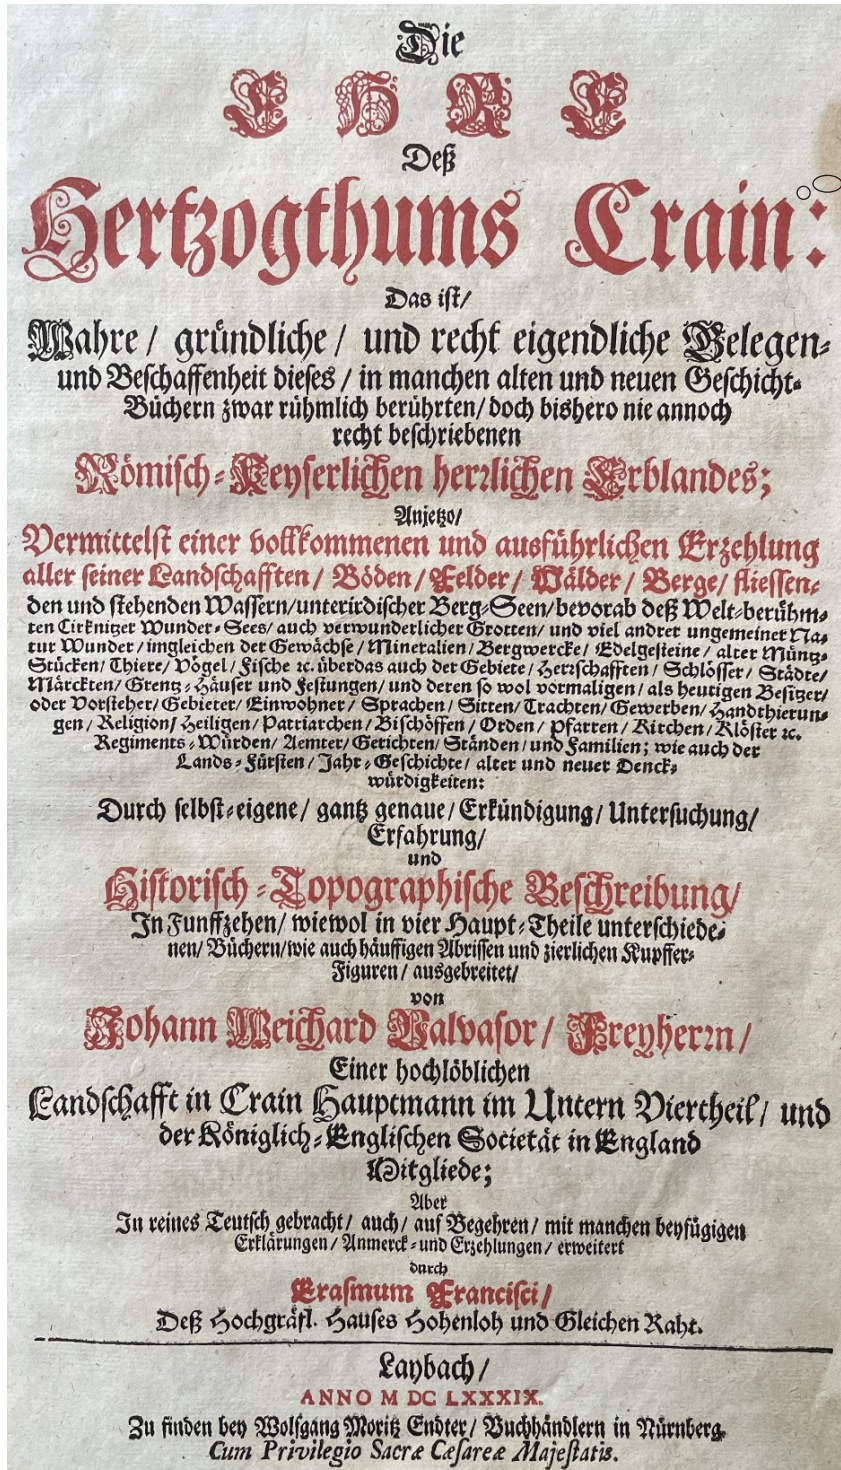 Die
EHRE
Deß
Hertzogthums Crain:
Das ist/
Wahre / gründliche / und recht eigendliche Gelegen-
und Beschaffenheit dieses / in manchen alten und neuen Geschicht-
Büchern zwar rühmlich berührten/ doch bishero nie annoch
recht beschriebenen
Römisch-Keyserlichen herrlichen Erblandes;
Anjetzo/
Vermittelst einer vollkommenen und ausführlichen Erzehlung
aller seiner Landschafften / Böden / Felder / Wälder / Berge / fliessen-
den und stehenden Wassern/unterirdischer Berg-Seen/bevorab deß Welt-berühm-
ten Cirknitzer Wunder-Sees/ auch verwunderlicher Grotten/ und viel andrer ungemeiner Na-
tur Wunder / imgleichen der Gewächse / Mineralien / Bergwercke / Edelgesteine / alter Müntz-
Stücken/ Thiere/ Vögel / Fische ꝛc. überdas auch der Gebiete / Herrschafften / Schlösser / Städte/
Märckten / Grentz-Häuser und Festungen/ und deren so wol vormaligen / als heutigen Besitzer/
oder Vorsteher/ Gebieter/ Einwohner / Sprachen / Sitten / Trachten/ Gewerben/ Handthierun-
gen / Religion/ Heiligen / Patriarchen / Bischöffen / Orden / Pfarren / Kirchen / Klöster ꝛc.
Regiments-Würden/ Aemter/ Gerichten/ Ständen / und Familien; wie auch der
Lands-Fürsten / Jahr-Geschichte / alter und neuer Denck-
würdigkeiten:
Durch selbst-eigene / gantz genaue / Erkündigung / Untersuchung/
Erfahrung/
und
Historisch-Topographische Beschreibung/
In Funffzehen/ wiewol in vier Haupt-Theile unterschiede-
nen/ Büchern/wie auch häuffigen Abrissen und zierlichen Kupffer-
Figuren / ausgebreitet/
von
Johann Weichard Valvasor / Freyherrn /
Einer hochlöblichen
Landschafft in Crain Hauptmann im Untern Viertheil / und
der Königlich-Englischen Societät in England
Mitgliede;
Aber
In reines Teutsch gebracht / auch / auf Begehren / mit manchen beyfügigen
Erklärungen / Anmerck-und Erzehlungen / erweitert
durch
Erasmum Francisci /
Deß Hochgräfl. Hauses Hohenloh und Gleichen Raht.
Laybach /
ANNO M DC LXXXIX.
Zu finden bey Wolfgang Moritz Endter / Buchhändlern in Nürnberg.
Cum Privilegio Sacræ Cæsareæ Majestatis.